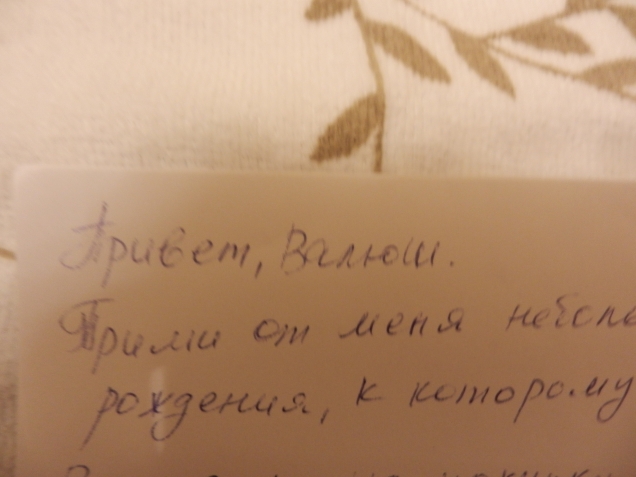 Привет, Валюш.
Прими от меня
рождения, к которому